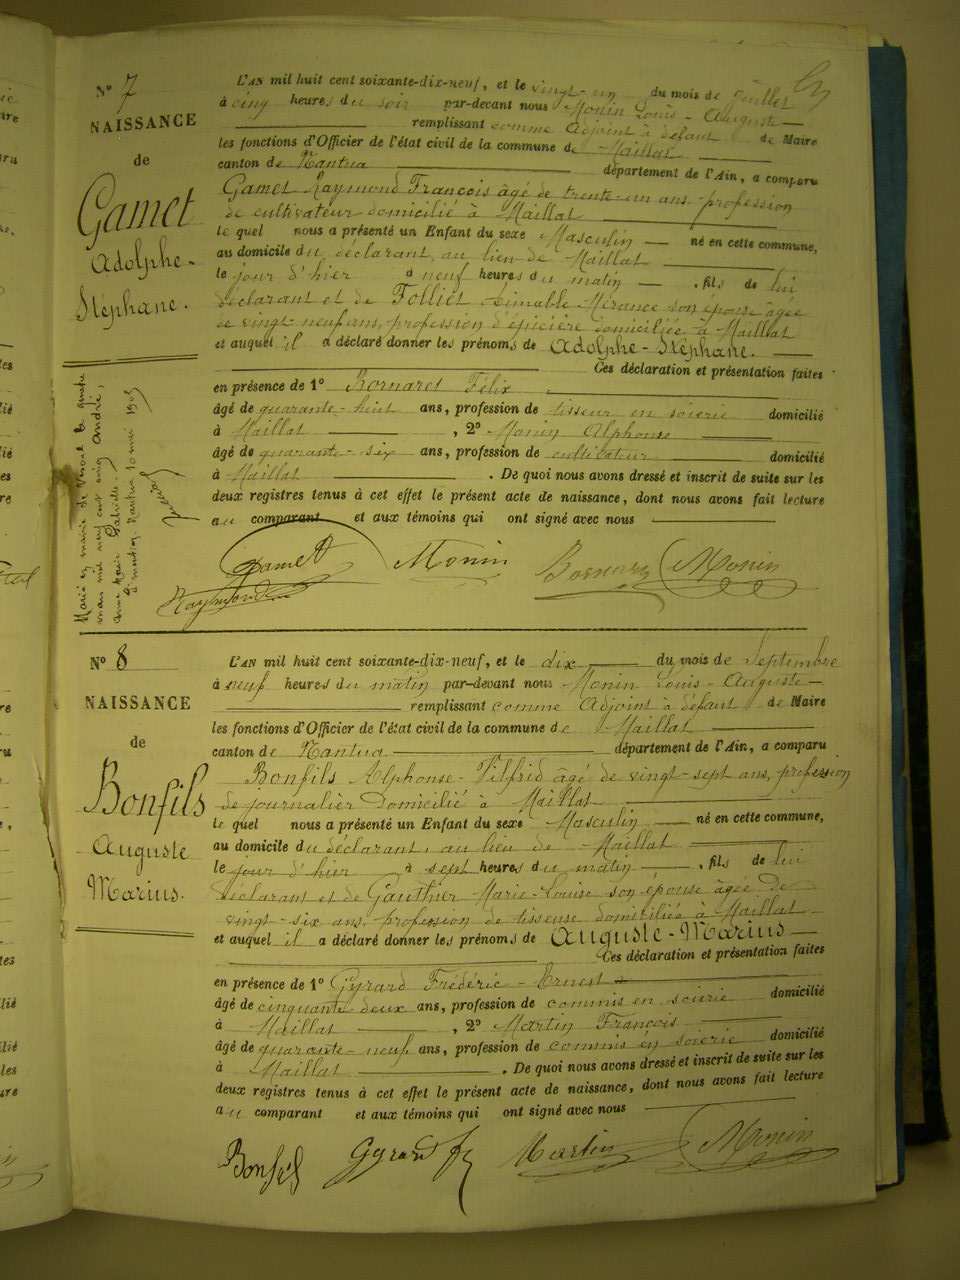 N° 7
NAISSANCE
de
Gamet
Adolphe-
Stéphane.
L'AN mil huit cent soixante-dix-neuf, et le vingt-un du mois de Juillet
à cinq heures du soir par-devant nous Monin Louis-Auguste
remplissant comme Adjoint à défaut de Maire
les fonctions d'Officier de l'état civil de la commune de Maillat
canton de Nantua département de l'Ain, a comparu
Gamet Raymond François âgé de trente-un ans profession
de cultivateur domicilié à Maillat
le quel nous a présenté un Enfant du sexe Masculin né en cette commune,
au domicile du déclarant, au lieu de Maillat
le jour d'hier à neuf heures du matin, fils de lui
déclarant et de Folliet Aimable Mérance son épouse âgée
de vingt-neuf ans, profession d'épicière domiciliée à Maillat
et auquel il a déclaré donner les prénoms de Adolphe-Stéphane.
Ces déclaration et présentation faites
en présence de 1° Bornaret Félix
âgé de quarante-huit ans, profession de tisseur en soierie domicilié
à Maillat, 2° Monin Alphonse
âgé de quarante-six ans, profession de cultivateur domicilié
à Maillat. De quoi nous avons dressé et inscrit de suite sur les
deux registres tenus à cet effet le présent acte de naissance, dont nous avons fait lecture
au comparant et aux témoins qui ont signé avec nous
Marié en mairie de
mars mil neuf cent cinq André,
Anne Marie
Nantua 10 mai 1905
Gamet Monin Bornaret Monin
Raymond
N° 8
NAISSANCE
de
Bonfils
Auguste
Marius.
L'AN mil huit cent soixante-dix-neuf, et le dix du mois de Septembre
à neuf heures du matin par-devant nous Monin Louis-Auguste
remplissant comme Adjoint à défaut de Maire
les fonctions d'Officier de l'état civil de la commune de Maillat
canton de Nantua département de l'Ain, a comparu
Bonfils Alphonse-Vilfrid âgé de vingt-sept ans, profession
de journalier domicilié à Maillat
le quel nous a présenté un Enfant du sexe Masculin né en cette commune,
au domicile du déclarant, au lieu de Maillat
le jour d'hier à sept heures du matin, fils de lui
déclarant et de Gauthier Marie-Louise son épouse âgée de
vingt-six ans, profession de tisseuse domiciliée à Maillat
et auquel il a déclaré donner les prénoms de Auguste-Marius
Ces déclaration et présentation faites
en présence de 1° Gyrard Frédéric-Ernest
âgé de cinquante deux ans, profession de commis en soierie domicilié
à Maillat, 2° Martin François
âgé de quarante-neuf ans, profession de commis en soierie domicilié
à Maillat. De quoi nous avons dressé et inscrit de suite sur les
deux registres tenus à cet effet le présent acte de naissance, dont nous avons fait lecture
au comparant et aux témoins qui ont signé avec nous
Bonfils Gyrard Martin Monin